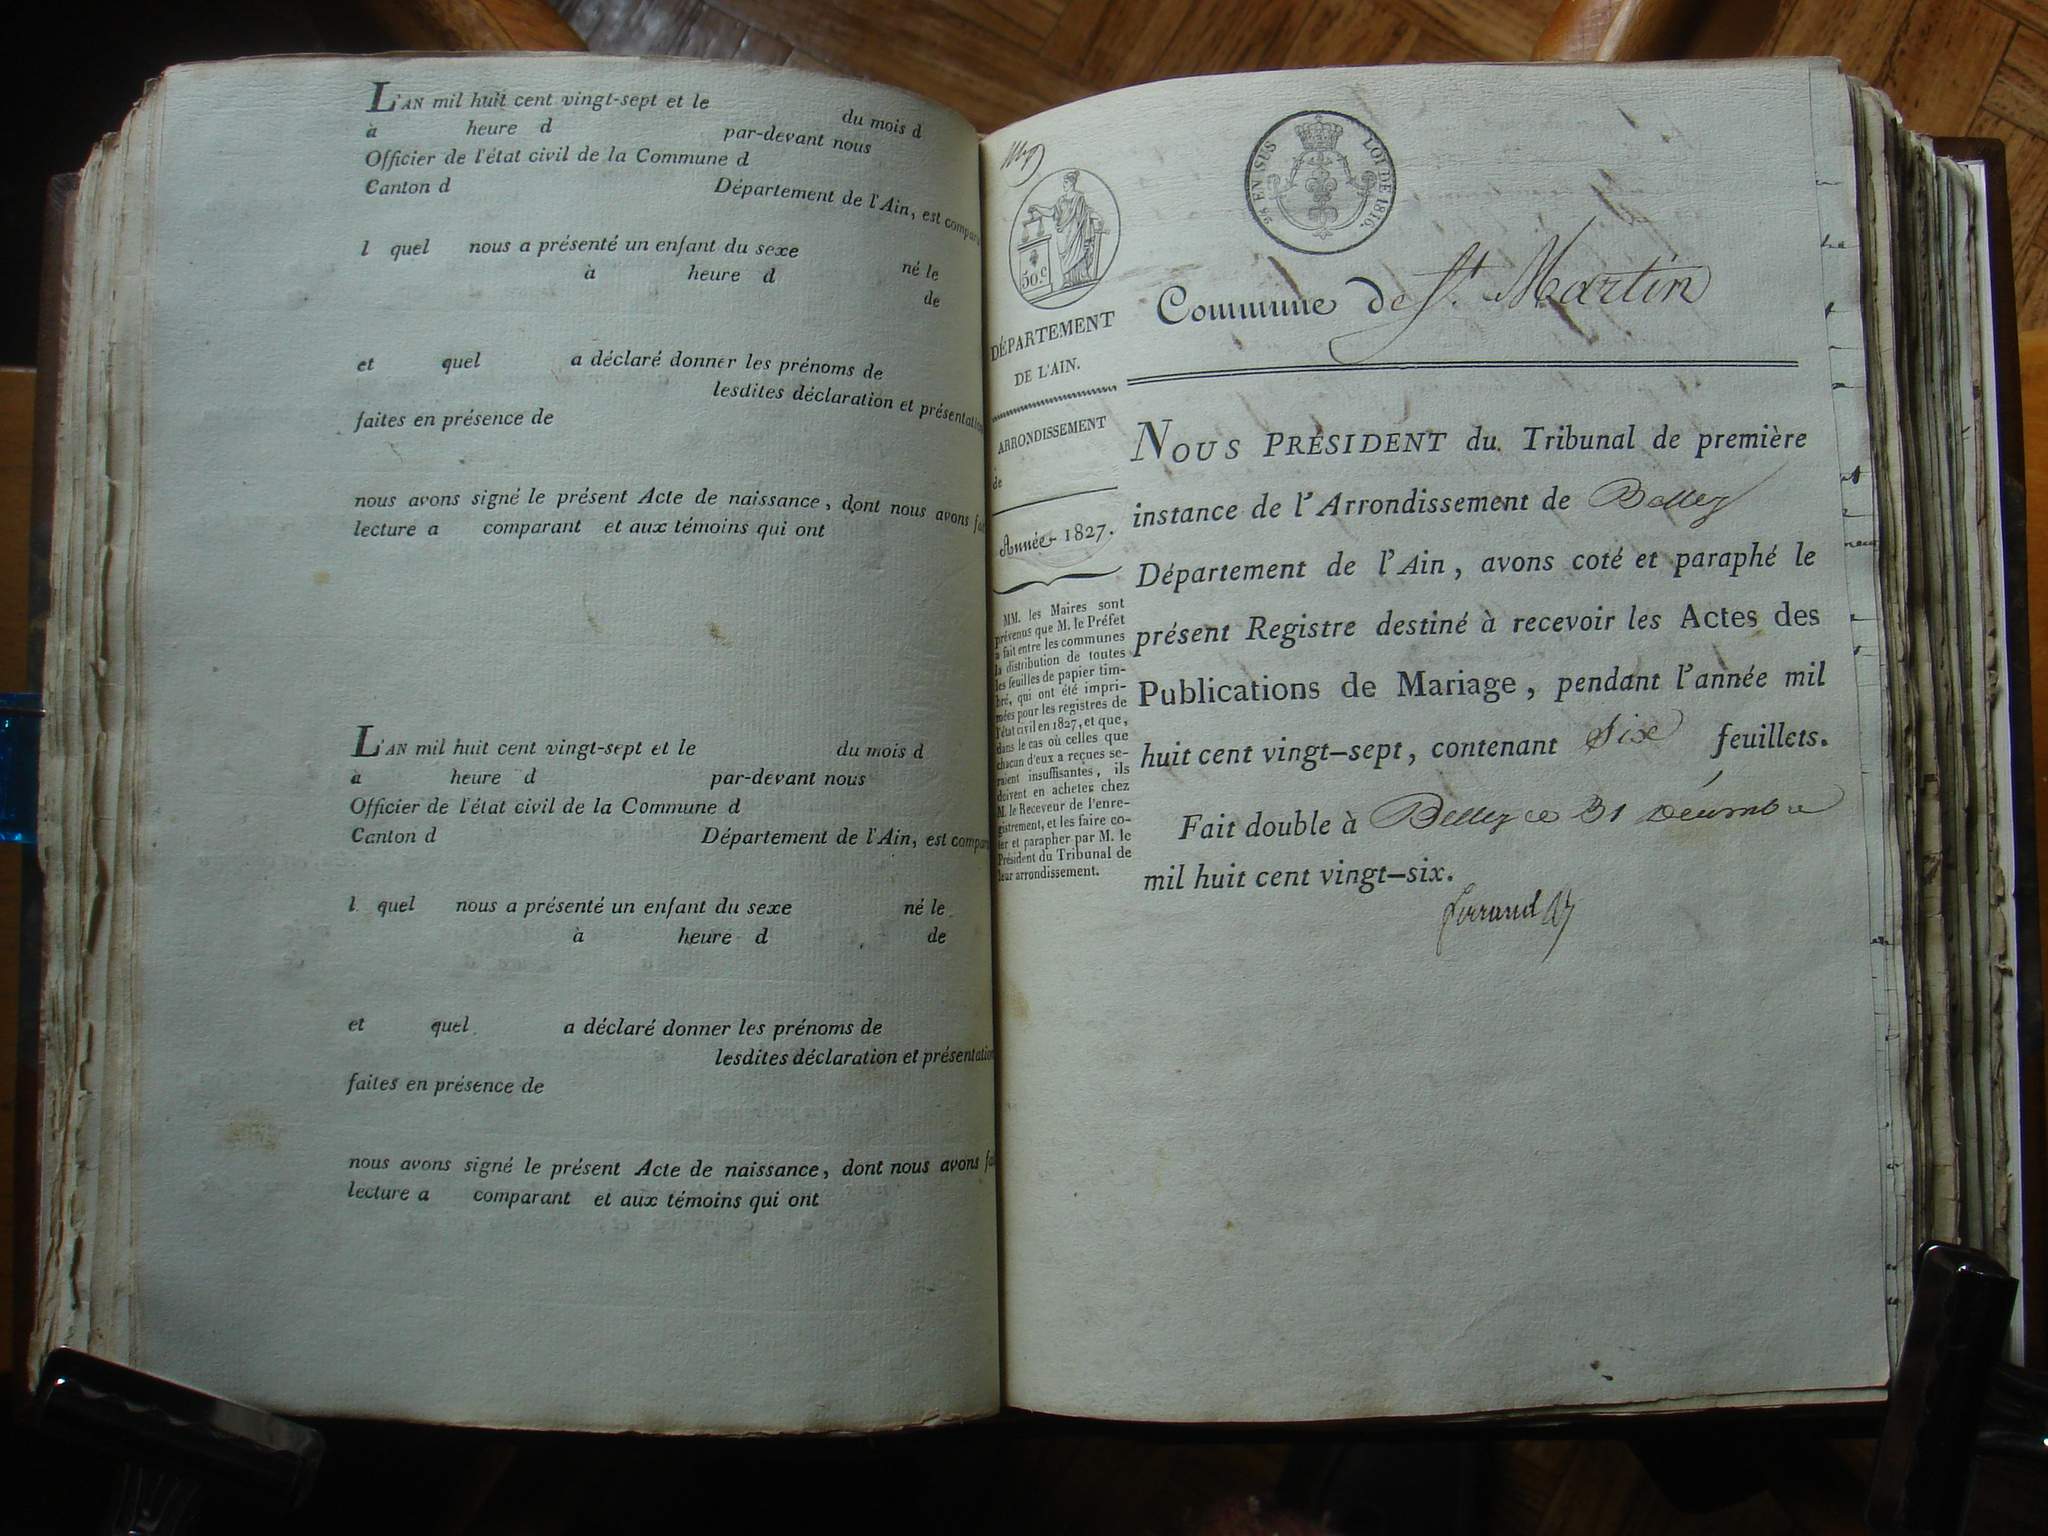 L'AN mil huit cent vingt-sept et le du mois d
à heure d par-devant nous
Officier de l'état civil de la Commune d
Canton d Département de l'Ain, est compar
l quel nous a présenté un enfant du sexe né le
à heure d de
et quel a déclaré donner les prénoms de
lesdites déclaration et présentation
faites en présence de
nous avons signé le présent Acte de naissance, dont nous avons fai
lecture a comparant et aux témoins qui ont
L'AN mil huit cent vingt-sept et le du mois d
à heure d par-devant nous
Officier de l'état civil de la Commune d
Canton d Département de l'Ain, est compar
l quel nous a présenté un enfant du sexe né le
à heure d de
et quel a déclaré donner les prénoms de
lesdites déclaration et présentation
faites en présence de
nous avons signé le présent Acte de naissance, dont nous avons fai
lecture a comparant et aux témoins qui ont
50.c
EN SUS LOI DE 1816.
DÉPARTEMENT
DE L'AIN.
ARRONDISSEMENT
de
Année 1827.
MM. les Maires sont
prévenus que M. le Préfet
a fait entre les communes
la distribution de toutes
les feuilles de papier tim-
bré, qui ont été impri-
mées pour les registres de
l'état civil en 1827, et que,
dans le cas où celles que
chacun d'eux a reçues se-
raient insuffisantes, ils
doivent en acheter chez
M. le Receveur de l'enre-
gistrement, et les faire co-
ter et parapher par M. le
Président du Tribunal de
leur arrondissement.
Commune de St. Martin
NOUS PRÉSIDENT du Tribunal de première
instance de l'Arrondissement de Belley
Département de l'Ain, avons coté et paraphé le
présent Registre destiné à recevoir les Actes des
Publications de Mariage, pendant l'année mil
huit cent vingt-sept, contenant Six feuillets.
Fait double à Belley ce 31 Décembre
mil huit cent vingt-six.